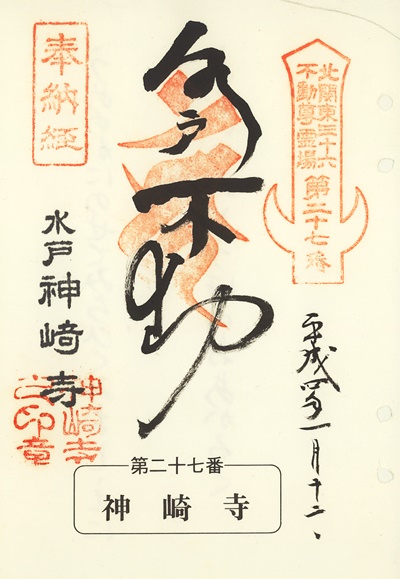 北関東三十六
不動尊霊場
第二十七番
水戸不動
奉納経
平成四年一月十二、
水戸神崎寺
神崎寺
之印章
第二十七番
神崎寺